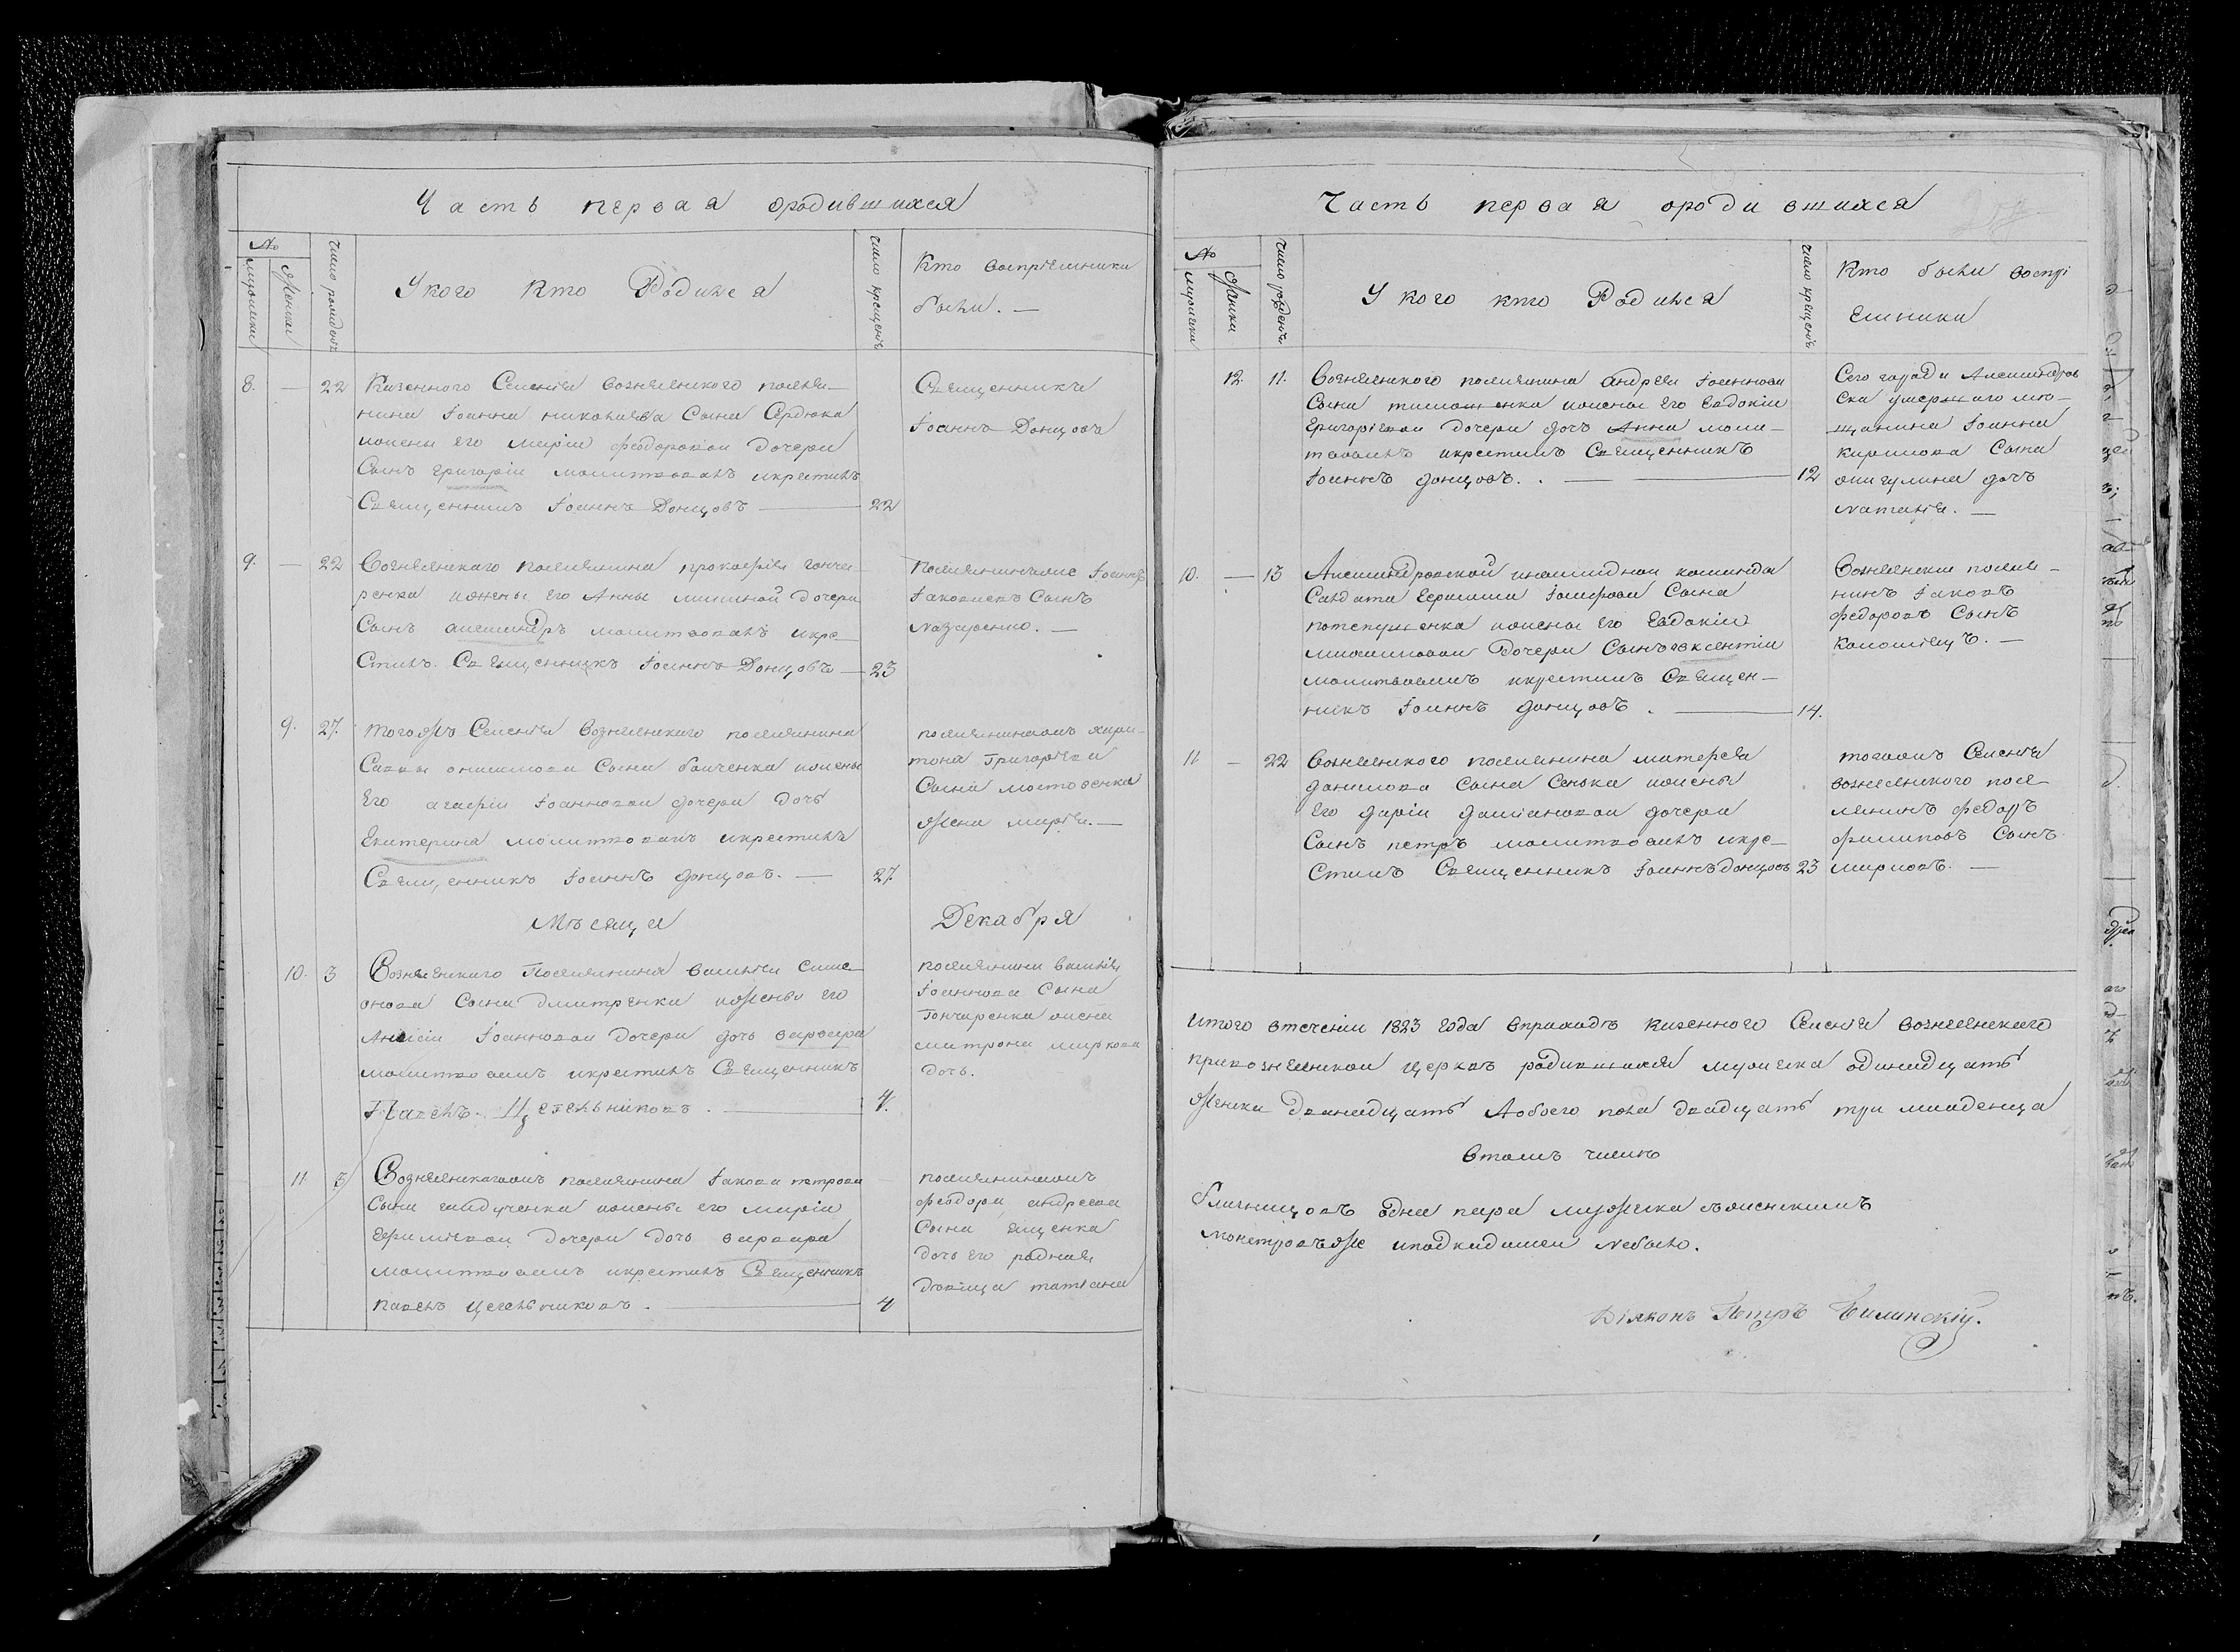 Часть первая ородившихся
№
мужеска
женска
число рожденiя
У кого кто Родился
число крещенiя
Кто восприемники
были. —
8. — 22
Казенного Селенiя вознесенского поселя-
нина Iоанна николаева Сына Сердюка
ижены его марiи феодоровой дочери
Сынъ григорiй молитвовалъ икрестилъ
Священникъ Iоаннъ Донцовъ — 22
Священникъ
Iоаннъ Донцовъ
9. — 22
Вознесенскаго поселянина прокофiя гонча-
ренка ижены его Анны дочери
Сынъ александръ молитвовалъ икре-
стилъ Священникъ Iоаннъ Донцовъ — 23
Iаковлевъ Сынъ
Назаренко. —
9. 27.
тогожъ Селенiя Вознесенского поселянина
Саввы онисимова Сына ижены
Его агафiи Iоанновой дочери дочь
Екатерина молитвовалъ икрестилъ
Священникъ Iоаннъ донцовъ. — 27
поселянина хари-
тона Григорiева
Сына мостовенка
жена марiя. —
Мѣсяца Декабря
10. 3
Вознесенскаго Поселянина василiя симе-
онова Сына дмитренка ижены его
Анисiи Iоанновой дочери дочь варвара
молитвовалъ икрестилъ Священникъ
Павелъ Цегельниковъ. — 4.
поселянина василiя
Iоаннова Сына
Гончаренка жена
матрона маркова
дочь.
11 3
поселянина Iакова петрова
Сына ижены его марiи
Ефимовой дочери дочь варвара
молитвовалъ икрестилъ Священникъ
павелъ цегельниковъ. — 4
феодора андреева
Сына ященка
дочь его родная
дѣвица татiана
Часть первая ородившихся
№
мужеска
женска
число рожденiя
У кого кто Родился
число крещенiя
Кто были воспрi
емники
12. 11.
Вознесенского поселянина андрея Iоаннова
Сына тимошенка ижены Его Евдокiи
григорiевой дочери дочь Анна моли-
твовалъ икрестилъ Священникъ
Iоаннъ донцовъ. — 12
Сего города Александров
ска умершаго мѣ-
щанина Iоанна
кирилова Сына
дочь
Наталiя. —
10. — 13
Александровской инвалидной команды
Салдата Герасима Iосифова Сына
ижены Его Евдокiи
дочери Сынъ авксентiй
молитвовалъ икрестилъ Священ-
никъ Iоаннъ донцовъ. — 14.
Вознесенскiй поселя-
нинъ Iаковъ
федоровъ Сынъ
Коломiецъ. —
11 — 22
Вознесенского поселянина матфея
данилова Сына Сенька ижены
Его дарiи дамiановой дочери
Сынъ петръ молитвовалъ икре-
стилъ Священникъ Iоаннъ донцовъ 23
Селенiя
вознесенского посе-
лянинъ федоръ
филиповъ Сынъ
Итого втеченiи 1823 года вприходѣ казенного Селенiя вознесенскаго
привознесенской церквѣ родившихся мужеска одинадцать
женска дванадцать Аобоего пола двадцать три младенца
втомъ числѣ
близнецовъ одна пара мужеска
монстровъже иподкидышей небыло.
Дiяконъ Петръ Билинскiй.